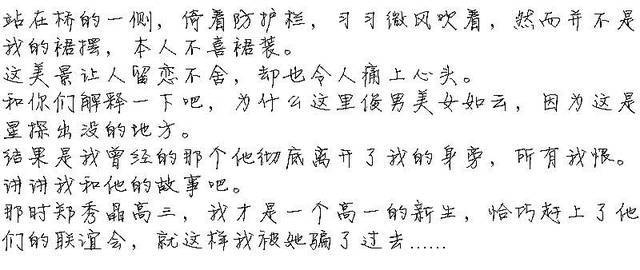 站在桥的一侧，倚着防护栏，习习微风吹着，然而并不是
我的裙摆，本人不喜裙装。
这美景让人留恋不舍，却也令人痛上心头。
和你们解释一下吧，为什么这里俊男美女如云，因为这是
星探出没的地方。
结果是我曾经的那个他彻底离开了我的身旁，所有我恨。
讲讲我和他的故事吧。
那时郑秀晶高三，我才是一个高一的新生，恰巧赶上了他
们的联谊会，就这样我被她骗了过去……